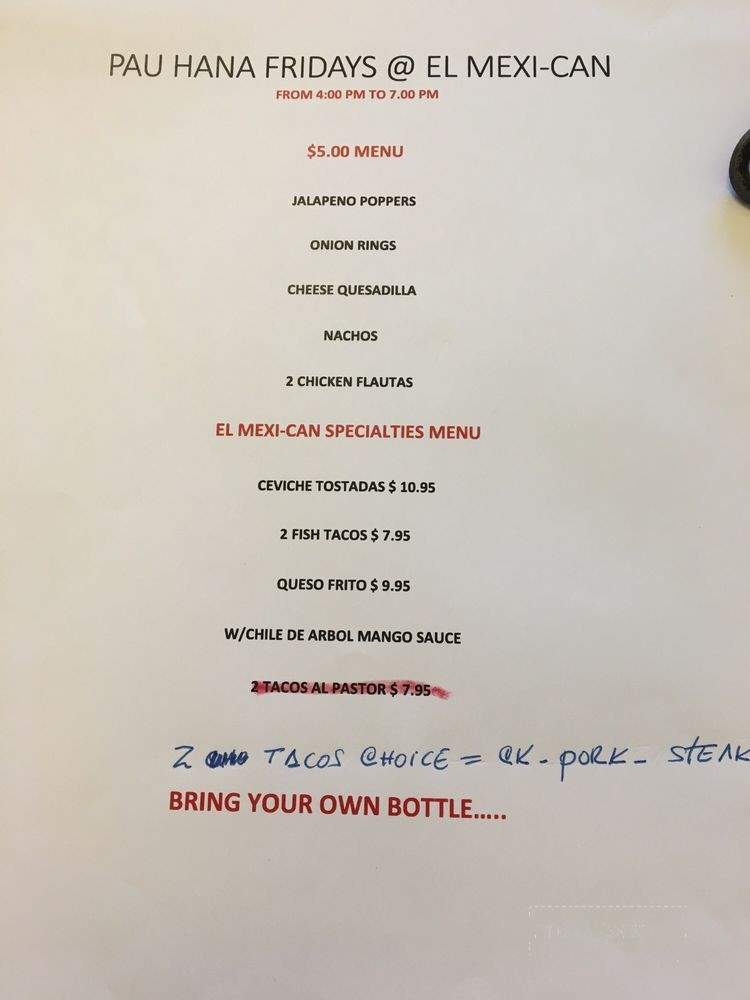 PAU HANA FRIDAYS @ EL MEXI-CAN
FROM 4:00 PM TO 7.00 PM
$5.00 MENU
JALAPENO POPPERS
ONION RINGS
CHEESE QUESADILLA
NACHOS
2 CHICKEN FLAUTAS
EL MEXI-CAN SPECIALTIES MENU
CEVICHE TOSTADAS $ 10.95
2 FISH TACOS $ 7.95
QUESO FRITO $ 9.95
W/CHILE DE ARBOL MANGO SAUCE
2 TACOS AL PASTOR $ 7.95
2 TACOS CHOICE = CK - PORK - STEAK
BRING YOUR OWN BOTTLE.....